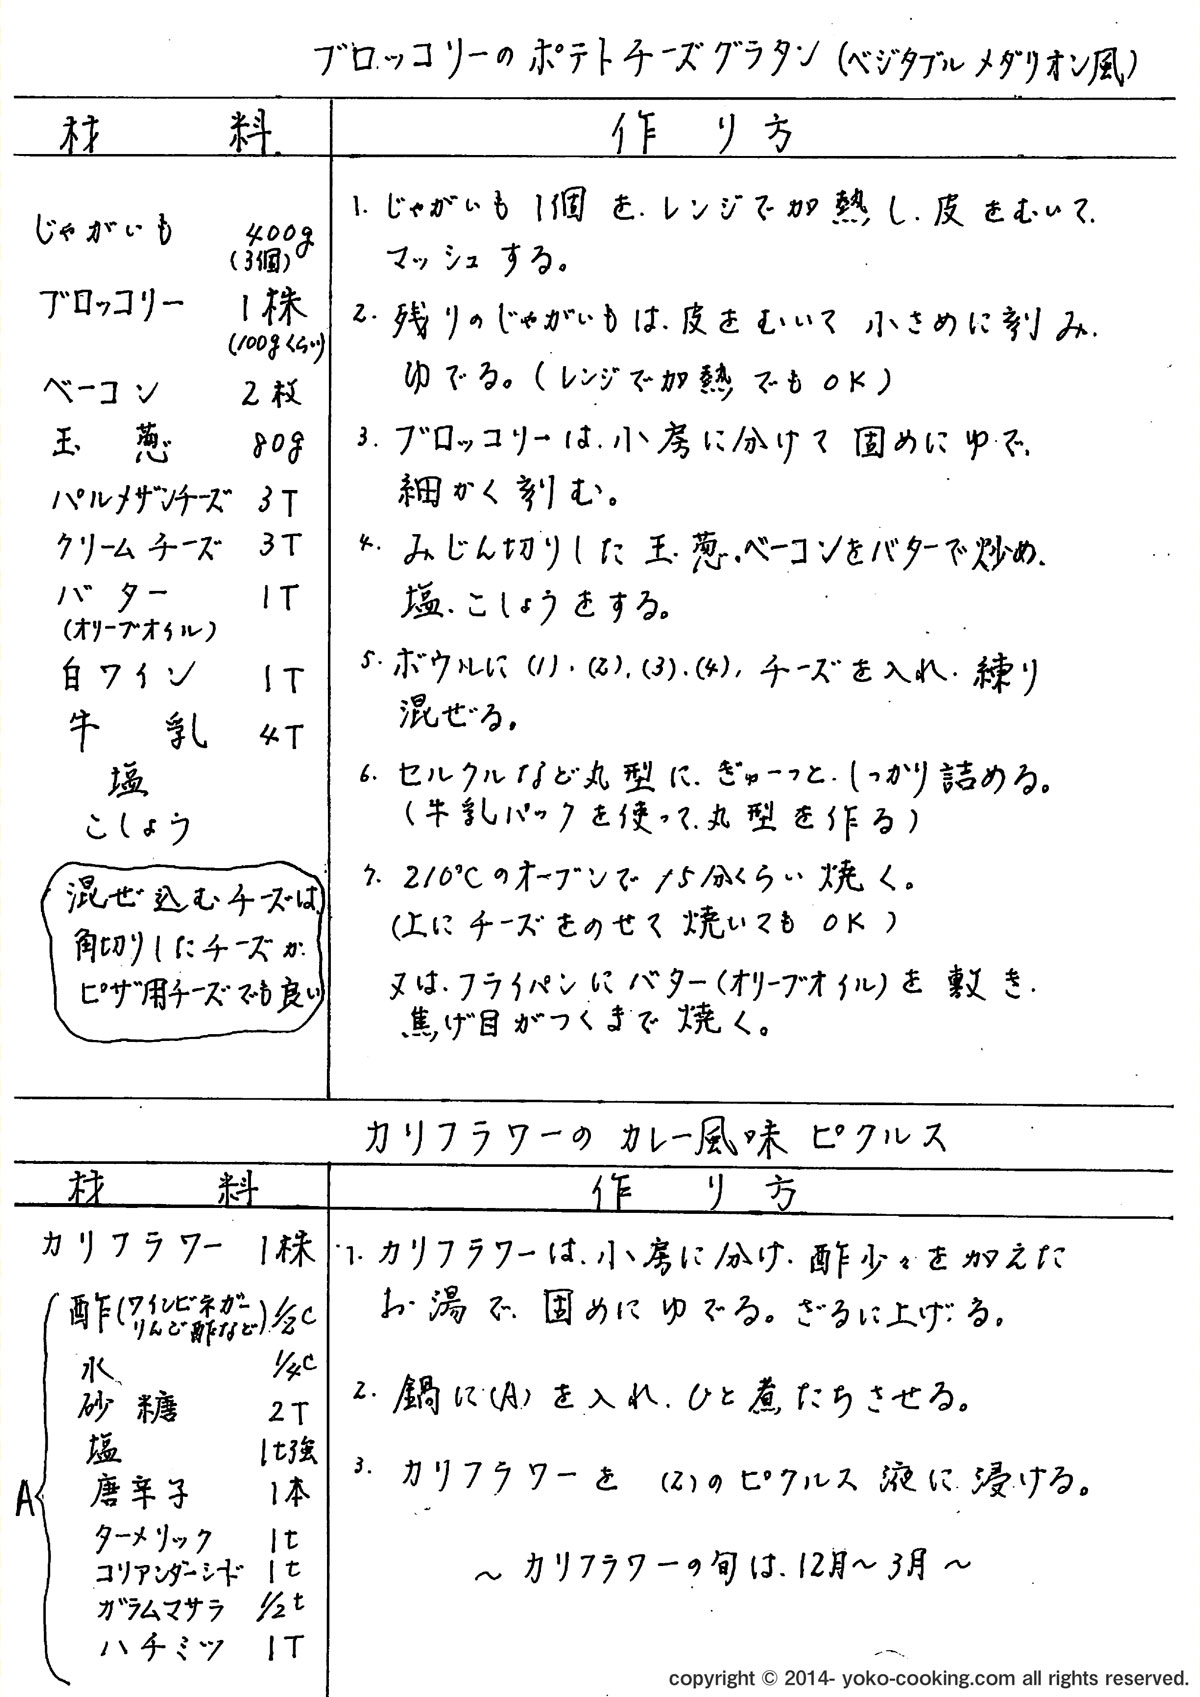 ブロッコリーのポテトチーズグラタン(ベジタブルメダリオン風)
材 料
作 り 方
じゃがいも 400g
(3個)
ブロッコリー 1株
(100gくらい)
ベーコン 2枚
玉 葱 80g
パルメザンチーズ 3T
クリームチーズ 3T
バター 1T
(オリーブオイル)
白ワイン 1T
牛 乳 4T
塩
こしょう
混ぜ込むチーズは、
角切りしたチーズか、
ピザ用チーズでも良い
1. じゃがいも1個を、レンジで加熱し、皮をむいて、
マッシュする。
2. 残りのじゃがいもは、皮をむいて小さめに刻み、
ゆでる。(レンジで加熱でもOK)
3. ブロッコリーは、小房に分けて固めにゆで、
細かく刻む。
4. みじん切りした玉葱、ベーコンをバターで炒め、
塩、こしょうをする。
5. ボウルに(1)、(2)、(3)、(4)、チーズを入れ、練り
混ぜる。
6. セルクルなど丸型に、ぎゅーっと、しっかり詰める。
(牛乳パックを使って、丸型を作る)
7. 210℃のオーブンで15分くらい焼く。
(上にチーズをのせて焼いてもOK)
又は、フライパンにバター(オリーブオイル)を敷き、
焦げ目がつくまで焼く。
カリフラワーのカレー風味ピクルス
材 料
作 り 方
カリフラワー 1株
A
酢(ワインビネガー
りんご酢など) 1/2C
水 1/4C
砂糖 2T
塩 1t強
唐辛子 1本
ターメリック 1t
コリアンダーシード 1t
ガラムマサラ 1/2t
ハチミツ 1T
1. カリフラワーは、小房に分け、酢少々を加えた
お湯で、固めにゆでる。ざるに上げる。
2. 鍋に(A)を入れ、ひと煮たちさせる。
3. カリフラワーを(2)のピクルス液に浸ける。
〜カリフラワーの旬は、12月〜3月〜
copyright © 2014- yoko-cooking.com all rights reserved.